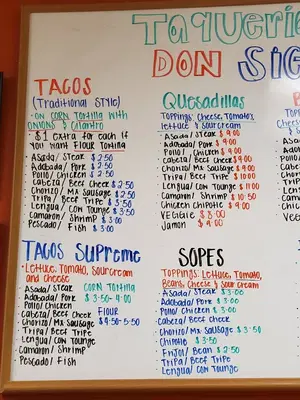 Taqueria
DON SIG
TACOS
(Traditional Style)
• ON CORN TORTILLA WITH
ONIONS & Cilantro
• $1 extra for each if
you want FLOUR TORTILLA
• Asada / Steak $2.50
• Adobada / Pork $2.50
• Pollo / Chicken $2.50
• Cabeza / Beef Cheek $2.50
• Chorizo / Mx Sausage $2.50
• Tripa / Beef Tripe $3.50
• Lengua / Cow Tounge $3.50
• Camaron / Shrimp $3.00
• Pescado / Fish $3.00
TACOS Supreme
• Lettuce, Tomato, Sourcream
and cheese
• Asada / Steak
• Adobada / Pork
• Pollo / Chicken
• Cabeza / Beef Cheek
• Chorizo / Mx Sausage
• Tripa / Beef Tripe
• Lengua / Cow Tounge
• Camaron / Shrimp
• Pescado / Fish
CORN TORTILLA
$3.50-4.00
FLOUR
$4.50-5.50
Quesadillas
Toppings: Cheese, Tomatoes,
lettuce & sour cream
• Asada / Steak $9.00
• Adobada / Pork $9.00
• Pollo / Chicken $9.00
• Cabeza / Beef Cheek $9.00
• Chorizo / Mx Sausage $9.00
• Tripa / Beef Tripe $10.00
• Lengua / Cow Tounge $11.00
• Camaron / Shrimp $10.50
• Chicken Chipotle $9.00
• VEGGIE $8.00
• Jamon $9.00
SOPES
Toppings: Lettuce, Tomato,
Beans, Cheese & Sour cream
• Asada / Steak $3.00
• Adobada / Pork $3.00
• Pollo / Chicken $3.00
• Cabeza / Beef Cheek
• Chorizo / Mx Sausage $3.50
• Chipotle $3.50
• Frijol / Bean $2.50
• Tripa / Beef Tripe
• Lengua / Cow Tounge